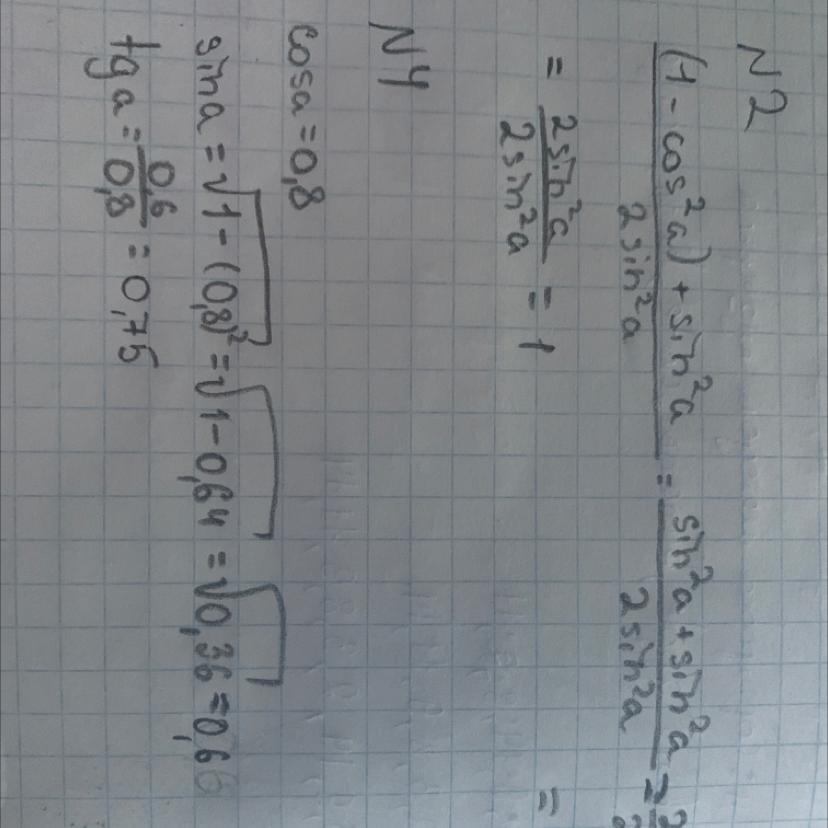 N2
(1 - cos²a) + sin²a / 2sin²a = sin²a + sin²a / 2sin²a =
= 2sin²a / 2sin²a = 1
=
N4
cosa = 0,8
sina = √1 - (0,8)² = √1 - 0,64 = √0,36 = 0,6
tga = 0,6 / 0,8 = 0,75